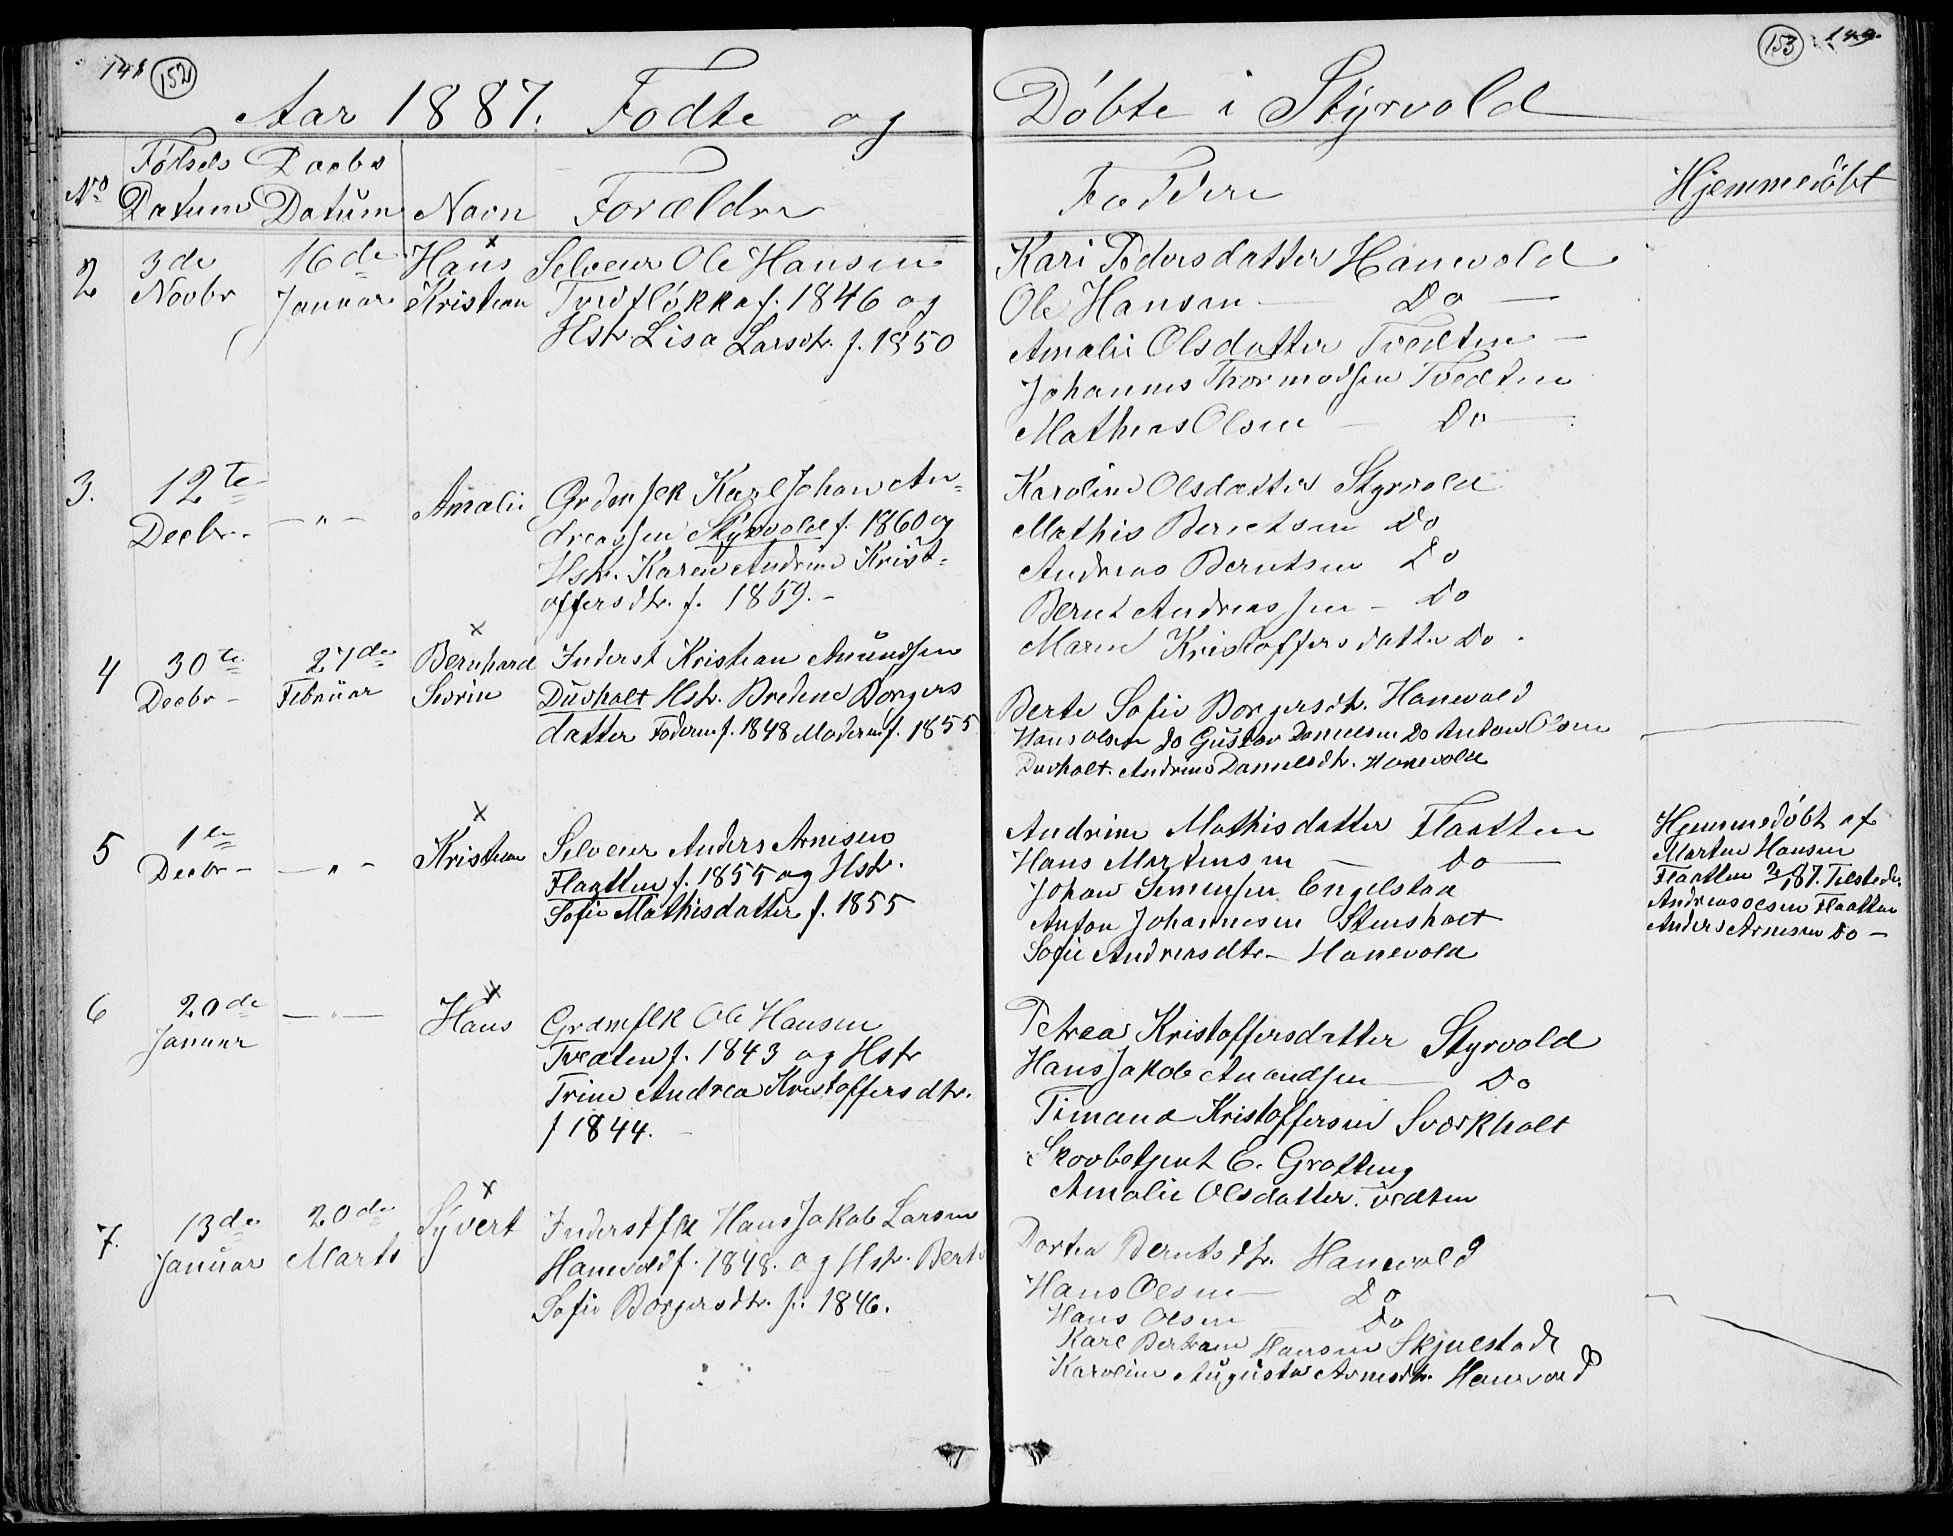 148 152
Aar 1887. Fødte og
Fødsels Daabs
No Datum Datum Navn Forældre
2 3de 16de Hans Selveier Ole Hansen
Novbr Januar Kristian Tvedtløkka f. 1846 og
Hstr Lisa Larsdtr. f. 1850
3. 12te Amalie Grdmflk Karl Johan An-
Decbr. — " — dreassen Styrvold f. 1860 og
Hstr. Karen Andrine Krist-
offersdtr. f. 1859. -
4 30te 27de Bernhard Inderst Kristian Amundsen
Decbr - Februar Severin Duvholt Hstr. Bredine Borgers
datter Faderen f. 1848 Moderen f. 1855
5 1te Kristian Selveier Anders Arnesen
Decbr - — " - Flaatten f. 1855 og Hstr.
Sofie Mathisdatter f. 1855
6 20de — " — Hans Grdmflk Ole Hansen
Januar Tvedten f. 1843 og Hstr
Trine Andrea Kristoffersdtr.
f 1844. -
7. 13de 20de Syvert Inderstflk Hans Jakob Larsen
Januar Marts Hanevold f. 1848. og Hstr. Berte
Sofie Borgersdtr. f. 1846.
153 149.
Døbte i Styrvold
Faddere Hjemmedøbt
Kari Pedersdatter Hanevold
Ole Hansen Do —
Amalie Olsdatter Tvedten —
Johannes Thormodsen Tvedten
Mathias Olsen — Do —
Karoline Olsdatter Styrvold
Mathis Berntsen Do
Andreas Berntsen Do
Bernt Andreassen - Do
Maren Kristoffersdatter Do -
Berte Sofie Borgersdtr. Hanevold
Hans Olsen Do Gustav Danielsen Do Anton Olsen
Duvholt. Andrine Danielsdtr. Hanevold
Andrine Mathisdatter Flaatten
Hans Martinsen — Do —
Johan Simensen Engelstad
Anton Johannesen Stensholt
Sofie Andreasdtr - Hanevold
Hjemmedøbt af
Marten Hansen
Flaatten 2/1 87. Tilstede:
Andreas Olsen Flaatten
Anders Arnesen Do —
Petrea Kristoffersdatter Styrvold
Hans Jakob Amundsen — Do
Timand Kristoffersen Sværkholt
Skovbetjent E. Grotting
Amalie Olsdatter. Tvedten
Dortea Berntsdtr. Hanevold
Hans Olsen Do
Hans Olsen Do
Karl Bertram Hansen Skjelstad
Karoline Augusta Arnesdtr. Hanevold